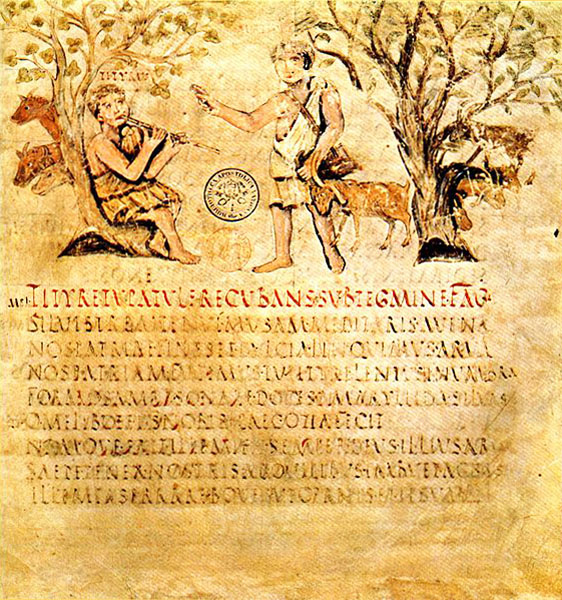 TITYRUS
TITYRE TU PATULE RECUBANS SUB TEGMINE FAG
SILVESTREM TENUI MUSAM MEDITARIS AVENA
NOS PATRIAE FINES ET DULCIA LINQUIMUS ARVA
NOS PATRIAM FUGIMUS TU TITYRE LENTUS IN UMBRA
FORMOSAM RESONARE DOCES AMARYLLIDA SILVAS
O MELIBOEE DEUS NOBIS HAEC OTIA FECIT
NAMQUE ERIT ILLE MIHI SEMPER DEUS ILLIUS ARA
SAEPE TENER NOSTRIS AB OVILIBUS IMBUET AGNUS
ILLE MEAS ERRARE BOVES UT CERNIS ET IPSUM